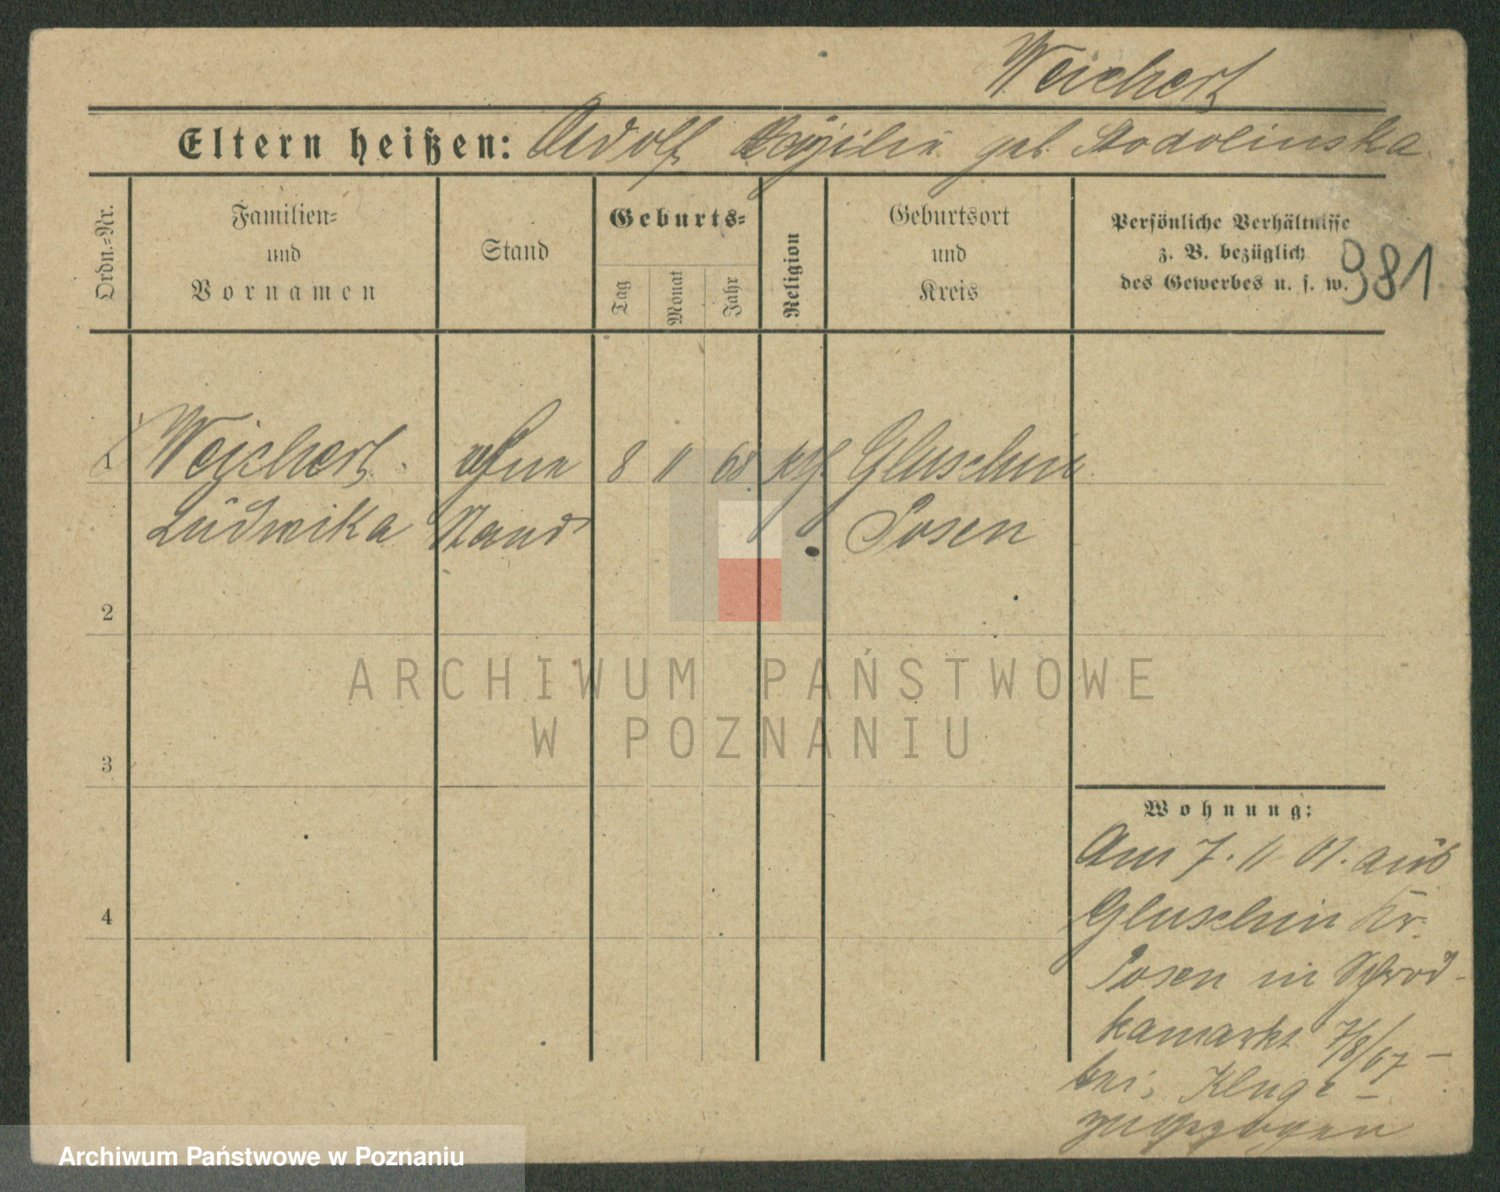 Weichert
Eltern heißen: Adolf Cäzilie geb. Stodolinska
Ordn.-Nr.
Familien- und Vornamen
Stand
Geburts-
Tag
Monat
Jahr
Religion
Geburtsort und Kreis
Persönliche Verhältnisse
z. B. bezüglich
des Gewerbes u. s. w.
981
1 Weichert ohne 8 11 68 kth Gluschin
Ludwika Stand Posen
2
3
4
Wohnung:
Am 7. 11 01. aus
Gluschin Kr.
Posen in Schrod-
kamarkt 7/8/67
bei Kluge
zugezogen
ARCHIWUM PAŃSTWOWE
W POZNANIU
Archiwum Państwowe w Poznaniu